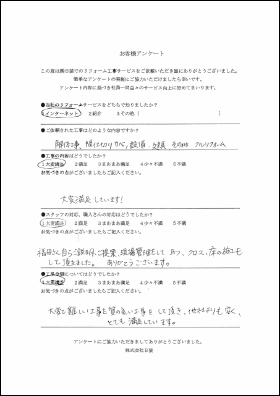 お客様アンケート
この度は弊社のリフォーム工事サービスをご依頼いただき誠にありがとうございました。
簡単なアンケートの掲載にご協力いただけましたら幸いです。
アンケート内容に基づき社員一同益々のサービス向上に努めてまいります。
●当社のリフォームサービスをどちらで知りましたか?
1インターネット 2紹介 3その他(
●ご依頼された工事はどのような内容ですか?
解体工事、間仕切りカベ、設備、その他 フルリフォーム
●工事の内容はどうでしたか?
1大変満足 2満足 3まあまあ満足 4少々不満 5不満
お気づきの点がございましたらご記入ください。
大変満足しています!
●スタッフの対応、職人さんの対応はどうでしたか?
1大変満足 2満足 3まあまあ満足 4少々不満 5不満
お気づきの点がございましたらご記入ください。
福田さん自ら ご提案、現場管理をして 、クロス、床の施工も
して頂きました。 ありがとうございます。
●工事金額についてはどうでしたか?
1大変満足 2満足 3まあまあ満足 4少々不満 5不満
お気づきの点がございましたらご記入ください。
大変難しい工事を質の高い工事をして頂き、他社よりも安く、
とても満足しています。
アンケートにご協力いただきましてありがとうございました。
株式会社